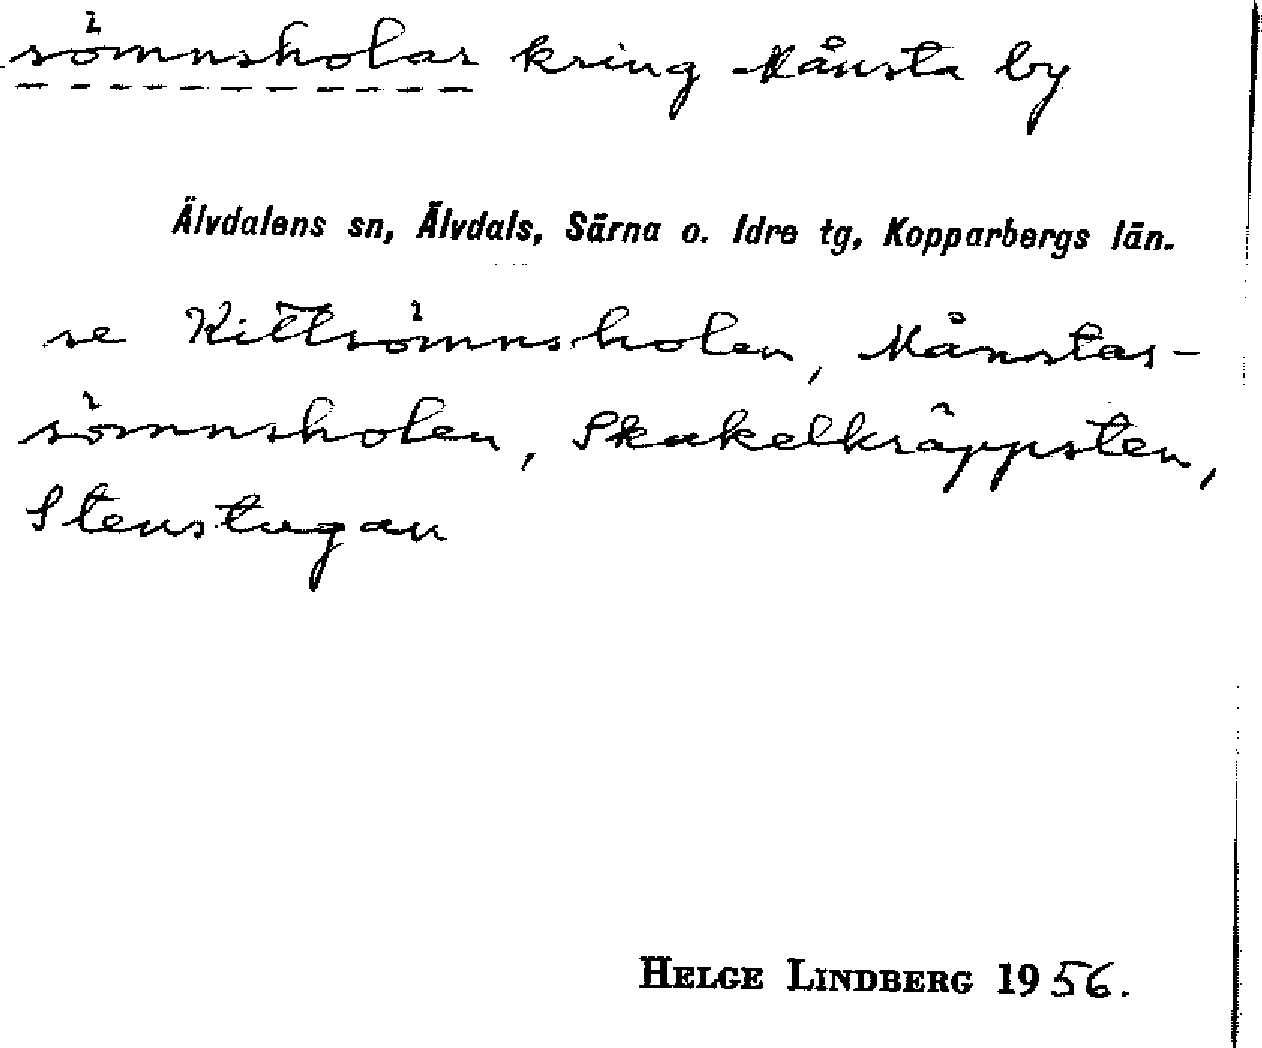 sömnsholar kring Månsta by
Älvdalens sn, Älvdals, Särna o. Idre tg, Kopparbergs län.
se Kittsömnsholen, Månstas-
sömnsholen, Skakelkräppsten,
Stenstugan
HELGE LINDBERG 1956.